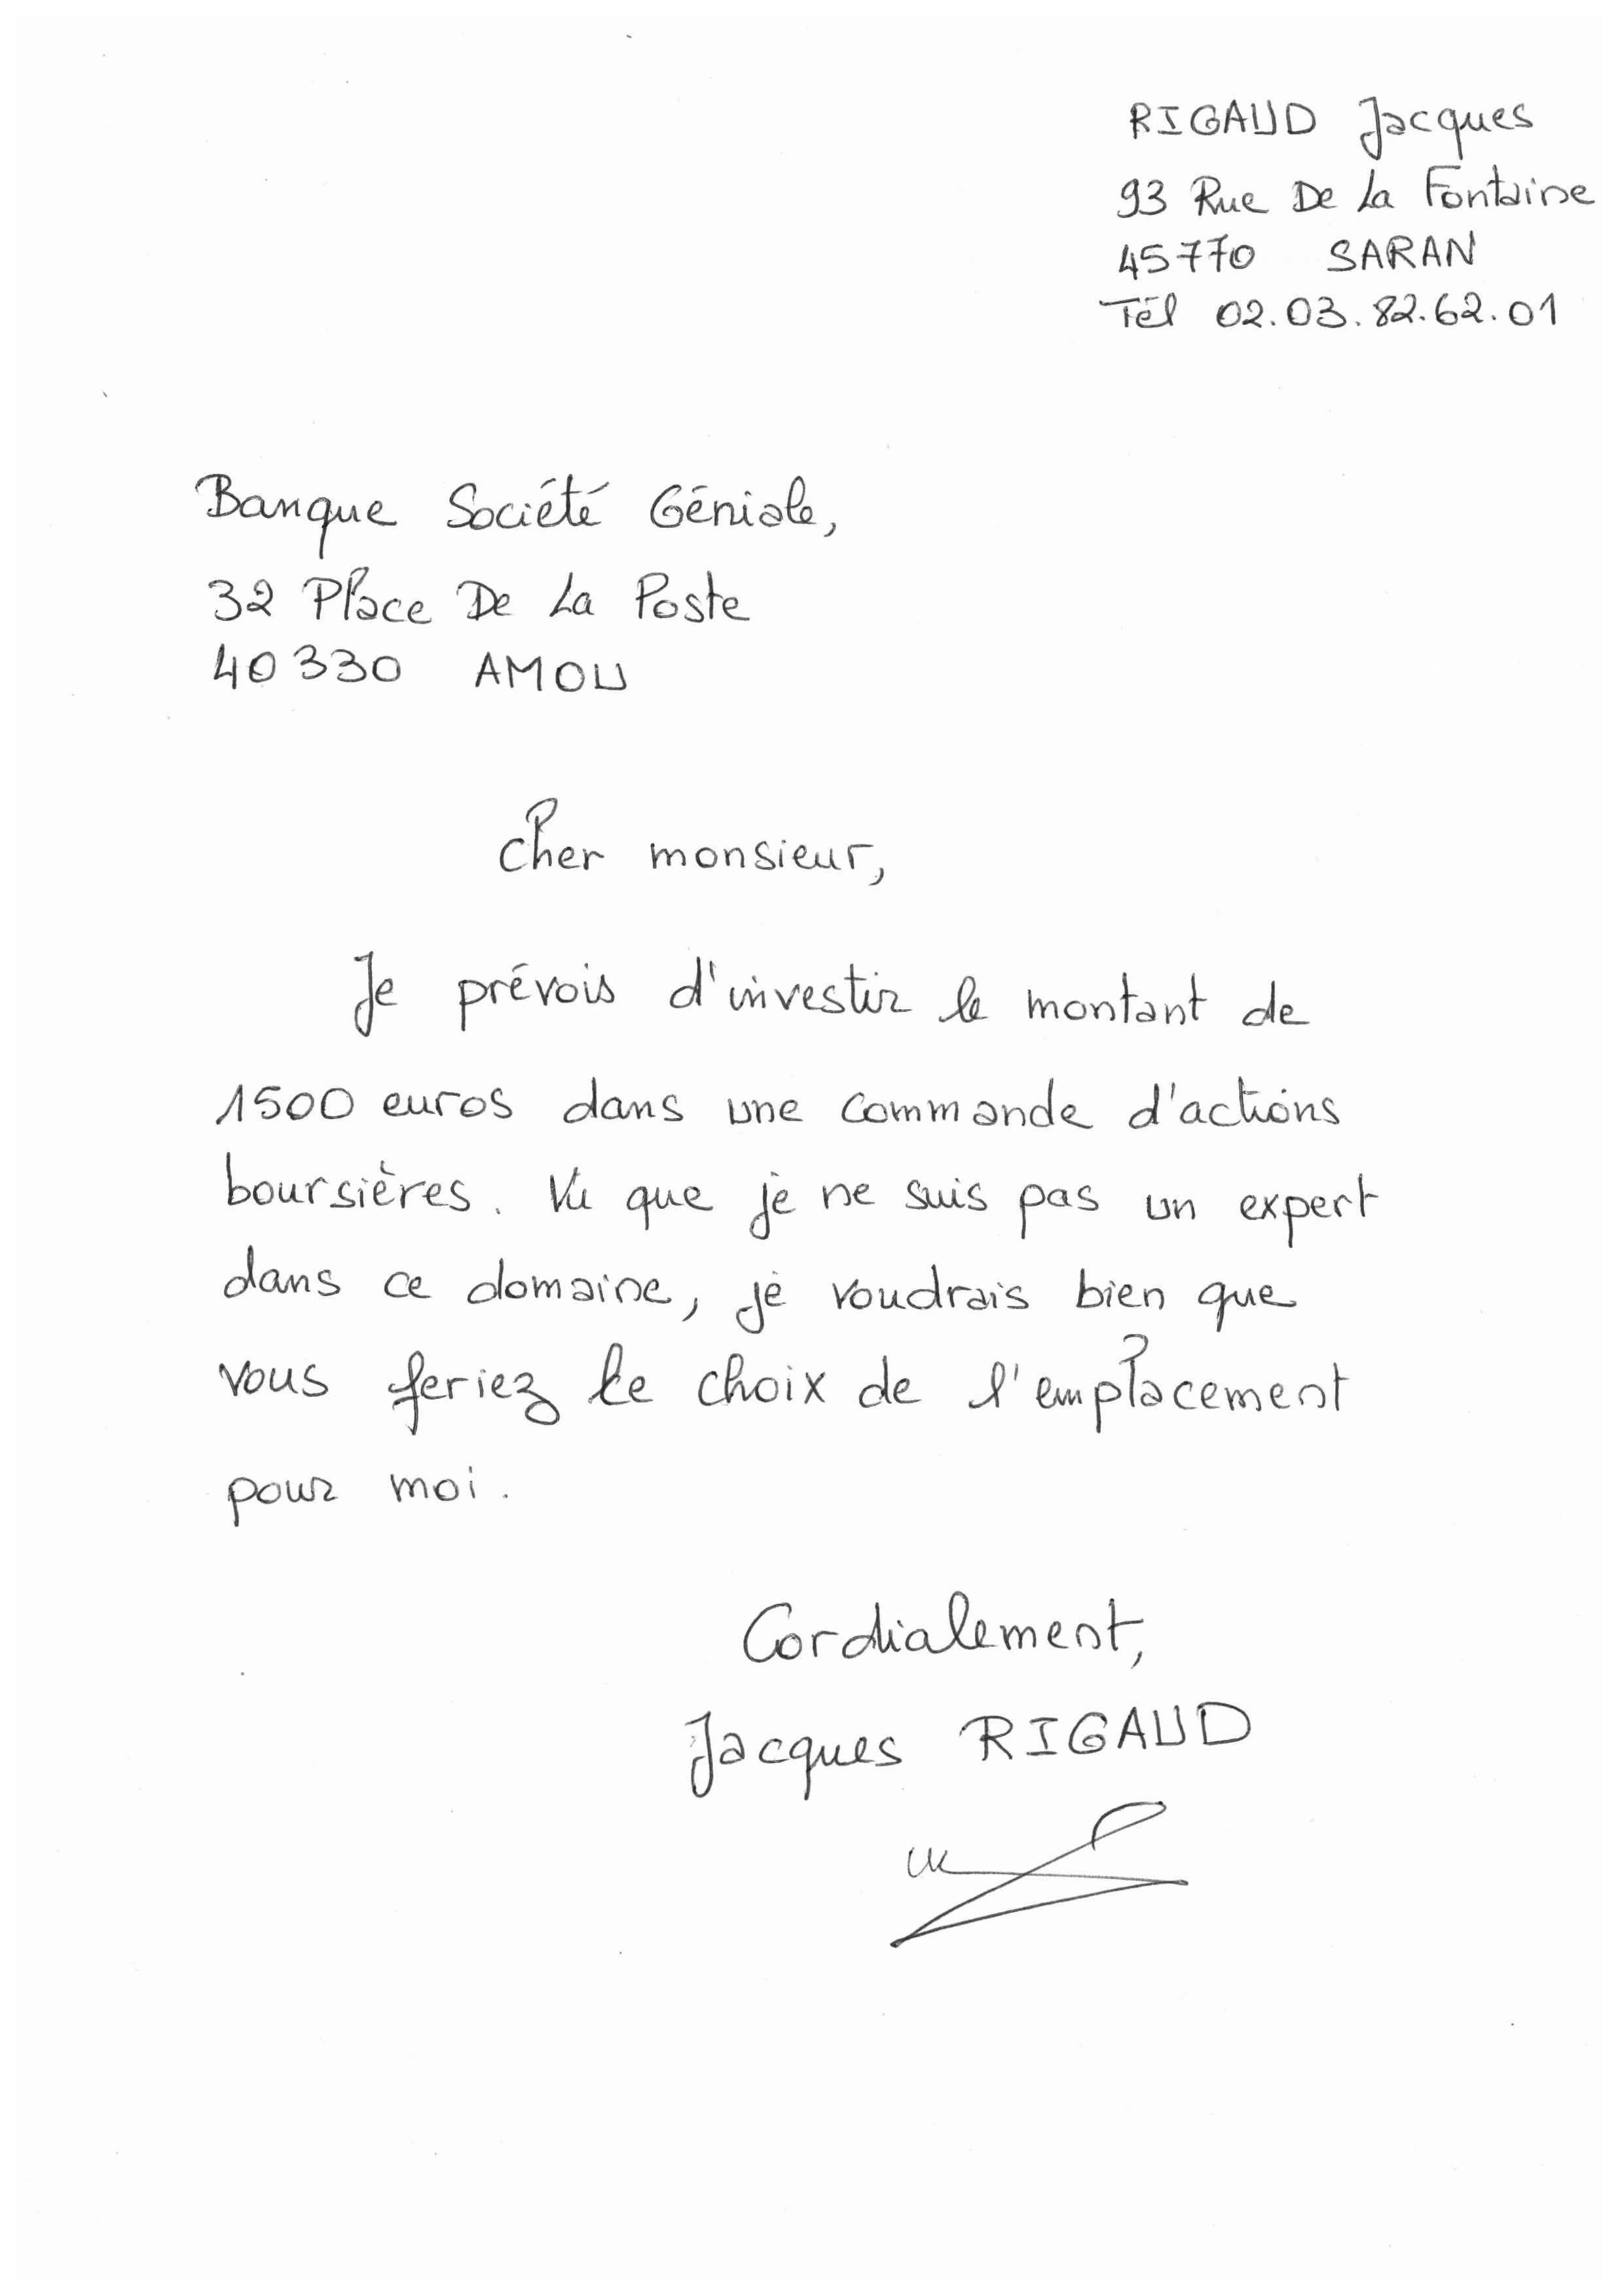 RIGAUD Jacques
93 Rue De La Fontaine
45770 SARAN
Tél 02.03.82.62.01
Banque Société Géniale,
32 Place De La Poste
40330 AMOU
Cher monsieur,
Je prévois d'investir le montant de
1500 euros dans une commande d'actions
boursières. Vu que je ne suis pas un expert
dans ce domaine, je voudrais bien que
vous feriez le choix de l'emplacement
pour moi.
Cordialement,
Jacques RIGAUD